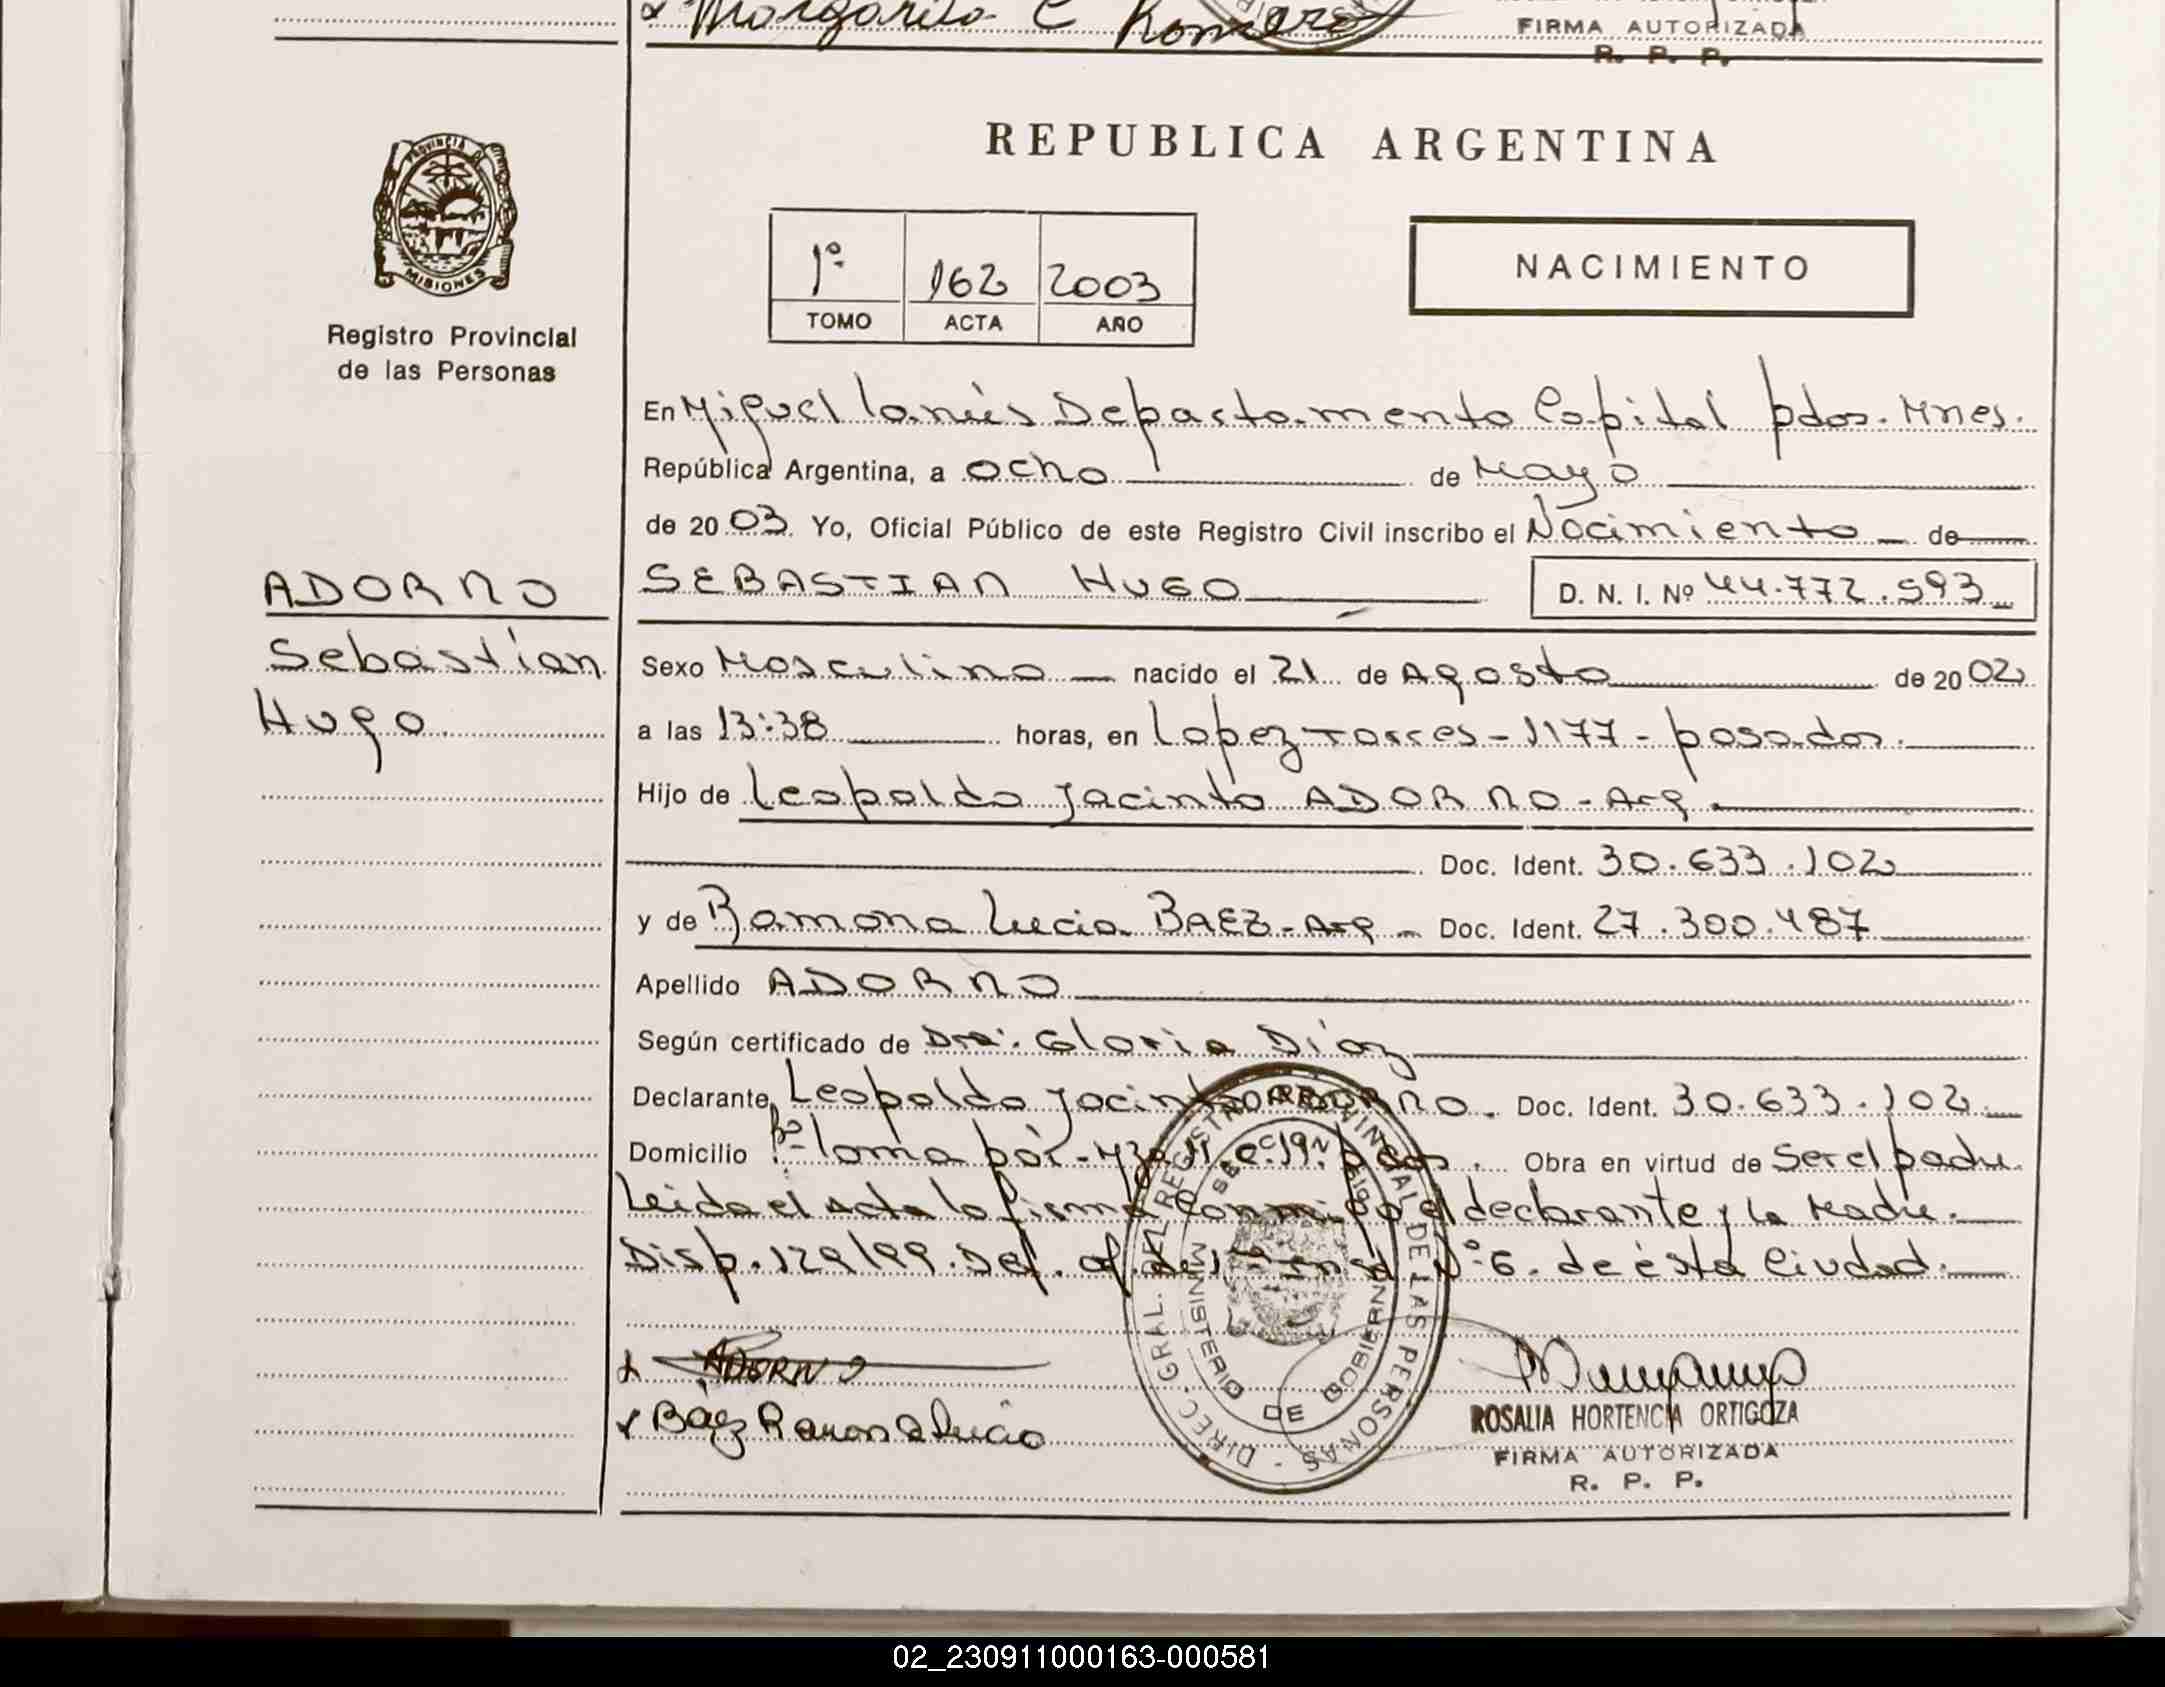 Margarita C Romero
FIRMA AUTORIZADA
R. P. P.
PROVINCIA DE
MISIONES
Registro Provincial
de las Personas
REPUBLICA ARGENTINA
1º 162 2003
TOMO ACTA AÑO
NACIMIENTO
En Miguel Lanús Departamento Capital pdas. Mnes.
República Argentina, a ocho de Mayo
de 2003. Yo, Oficial Público de este Registro Civil inscribo el Nacimiento de
ADORNO
Sebastían
Hugo
SEBASTIAN HUGO D. N. I. Nº 44.772.593
Sexo Masculino nacido el 21 de Agosto de 2002
a las 13:38 horas, en Lopez Torres - 1177 - posadas.
Hijo de Leopoldo Jacinto ADORNO - Arg
Doc. Ident. 30.633.102
y de Ramona Lucia BAEZ - Arg - Doc. Ident. 27.300.487
Apellido ADORNO
Según certificado de Dra. Gloria Díaz
Declarante Leopoldo Jacinto ADORNO. Doc. Ident. 30.633.102
Domicilio Bº Loma poi - Mza c. 19. pdas. Obra en virtud de Ser el padre.
Leida el Acta la firma conmigo el declarante y la Madre.
Disp. 129/99. Def. of. de Nº 6. de ésta Ciudad.
DIREC. GRAL. DEL REGISTRO PROVINCIAL DE LAS PERSONAS
MINISTERIO DE GOBIERNO
ADORNO
Baez Ramona Lucia
ROSALIA HORTENCIA ORTIGOZA
FIRMA AUTORIZADA
R. P. P.
02_230911000163-000581